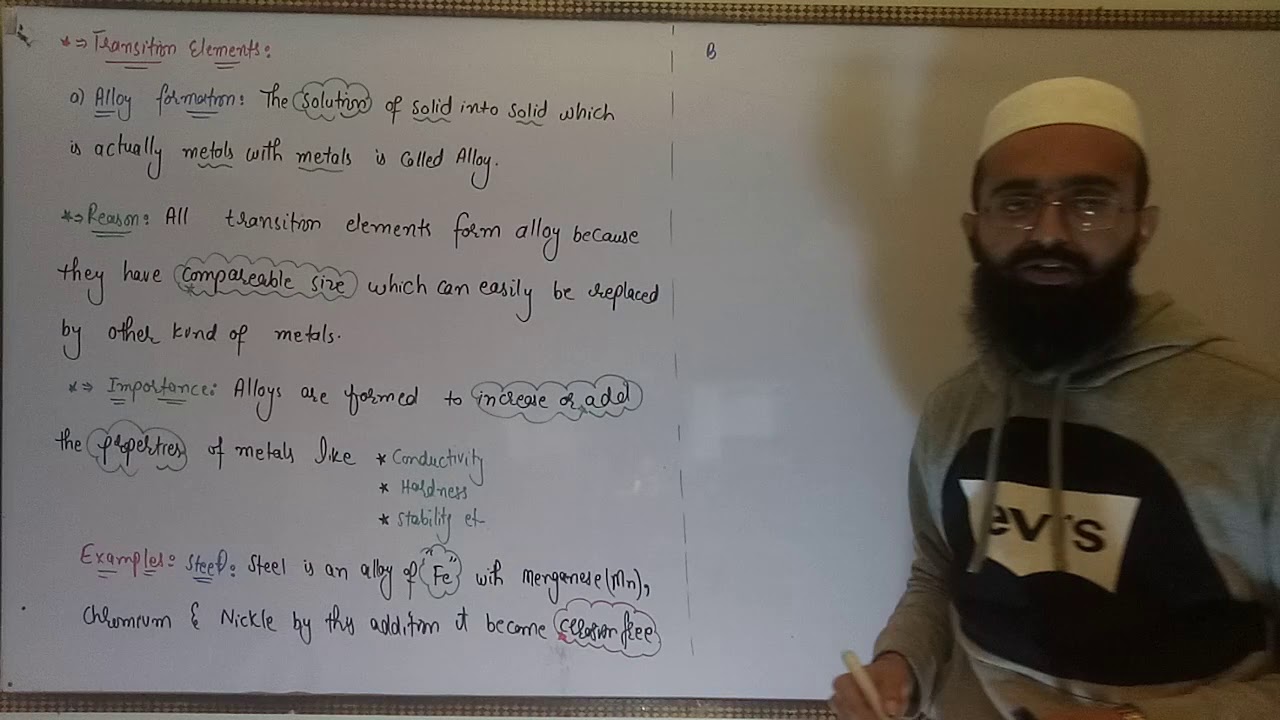 *⇒ Transition Elements:
a) Alloy formation: The solution of solid into solid which
is actually metals with metals is called Alloy.
*⇒ Reason: All transition elements form alloy because
they have compareable size which can easily be replaced
by other kind of metals.
*⇒ Importance: Alloys are formed to increase or add
the properties of metals like * Conductivity
* Hardness
* Stability et
Examples: Steel: Steel is an alloy of "Fe" with Menganese (Mn),
Chromium & Nickle by this addition it become free
B